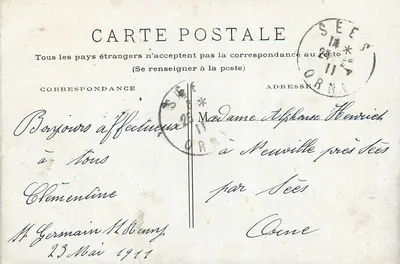 CARTE POSTALE
Tous les pays étrangers n'acceptent pas la correspondance au recto
(Se renseigner à la poste)
CORRESPONDANCE
ADRESSE
SÉES
ORNE
SÉE
25
11
ORNE
Bonjours affectueux
à tous
Clémentine
St Germain
23 Mai 1911
Madame Alphonse Henrich
à Neuville près Sées
par Sées
Orne